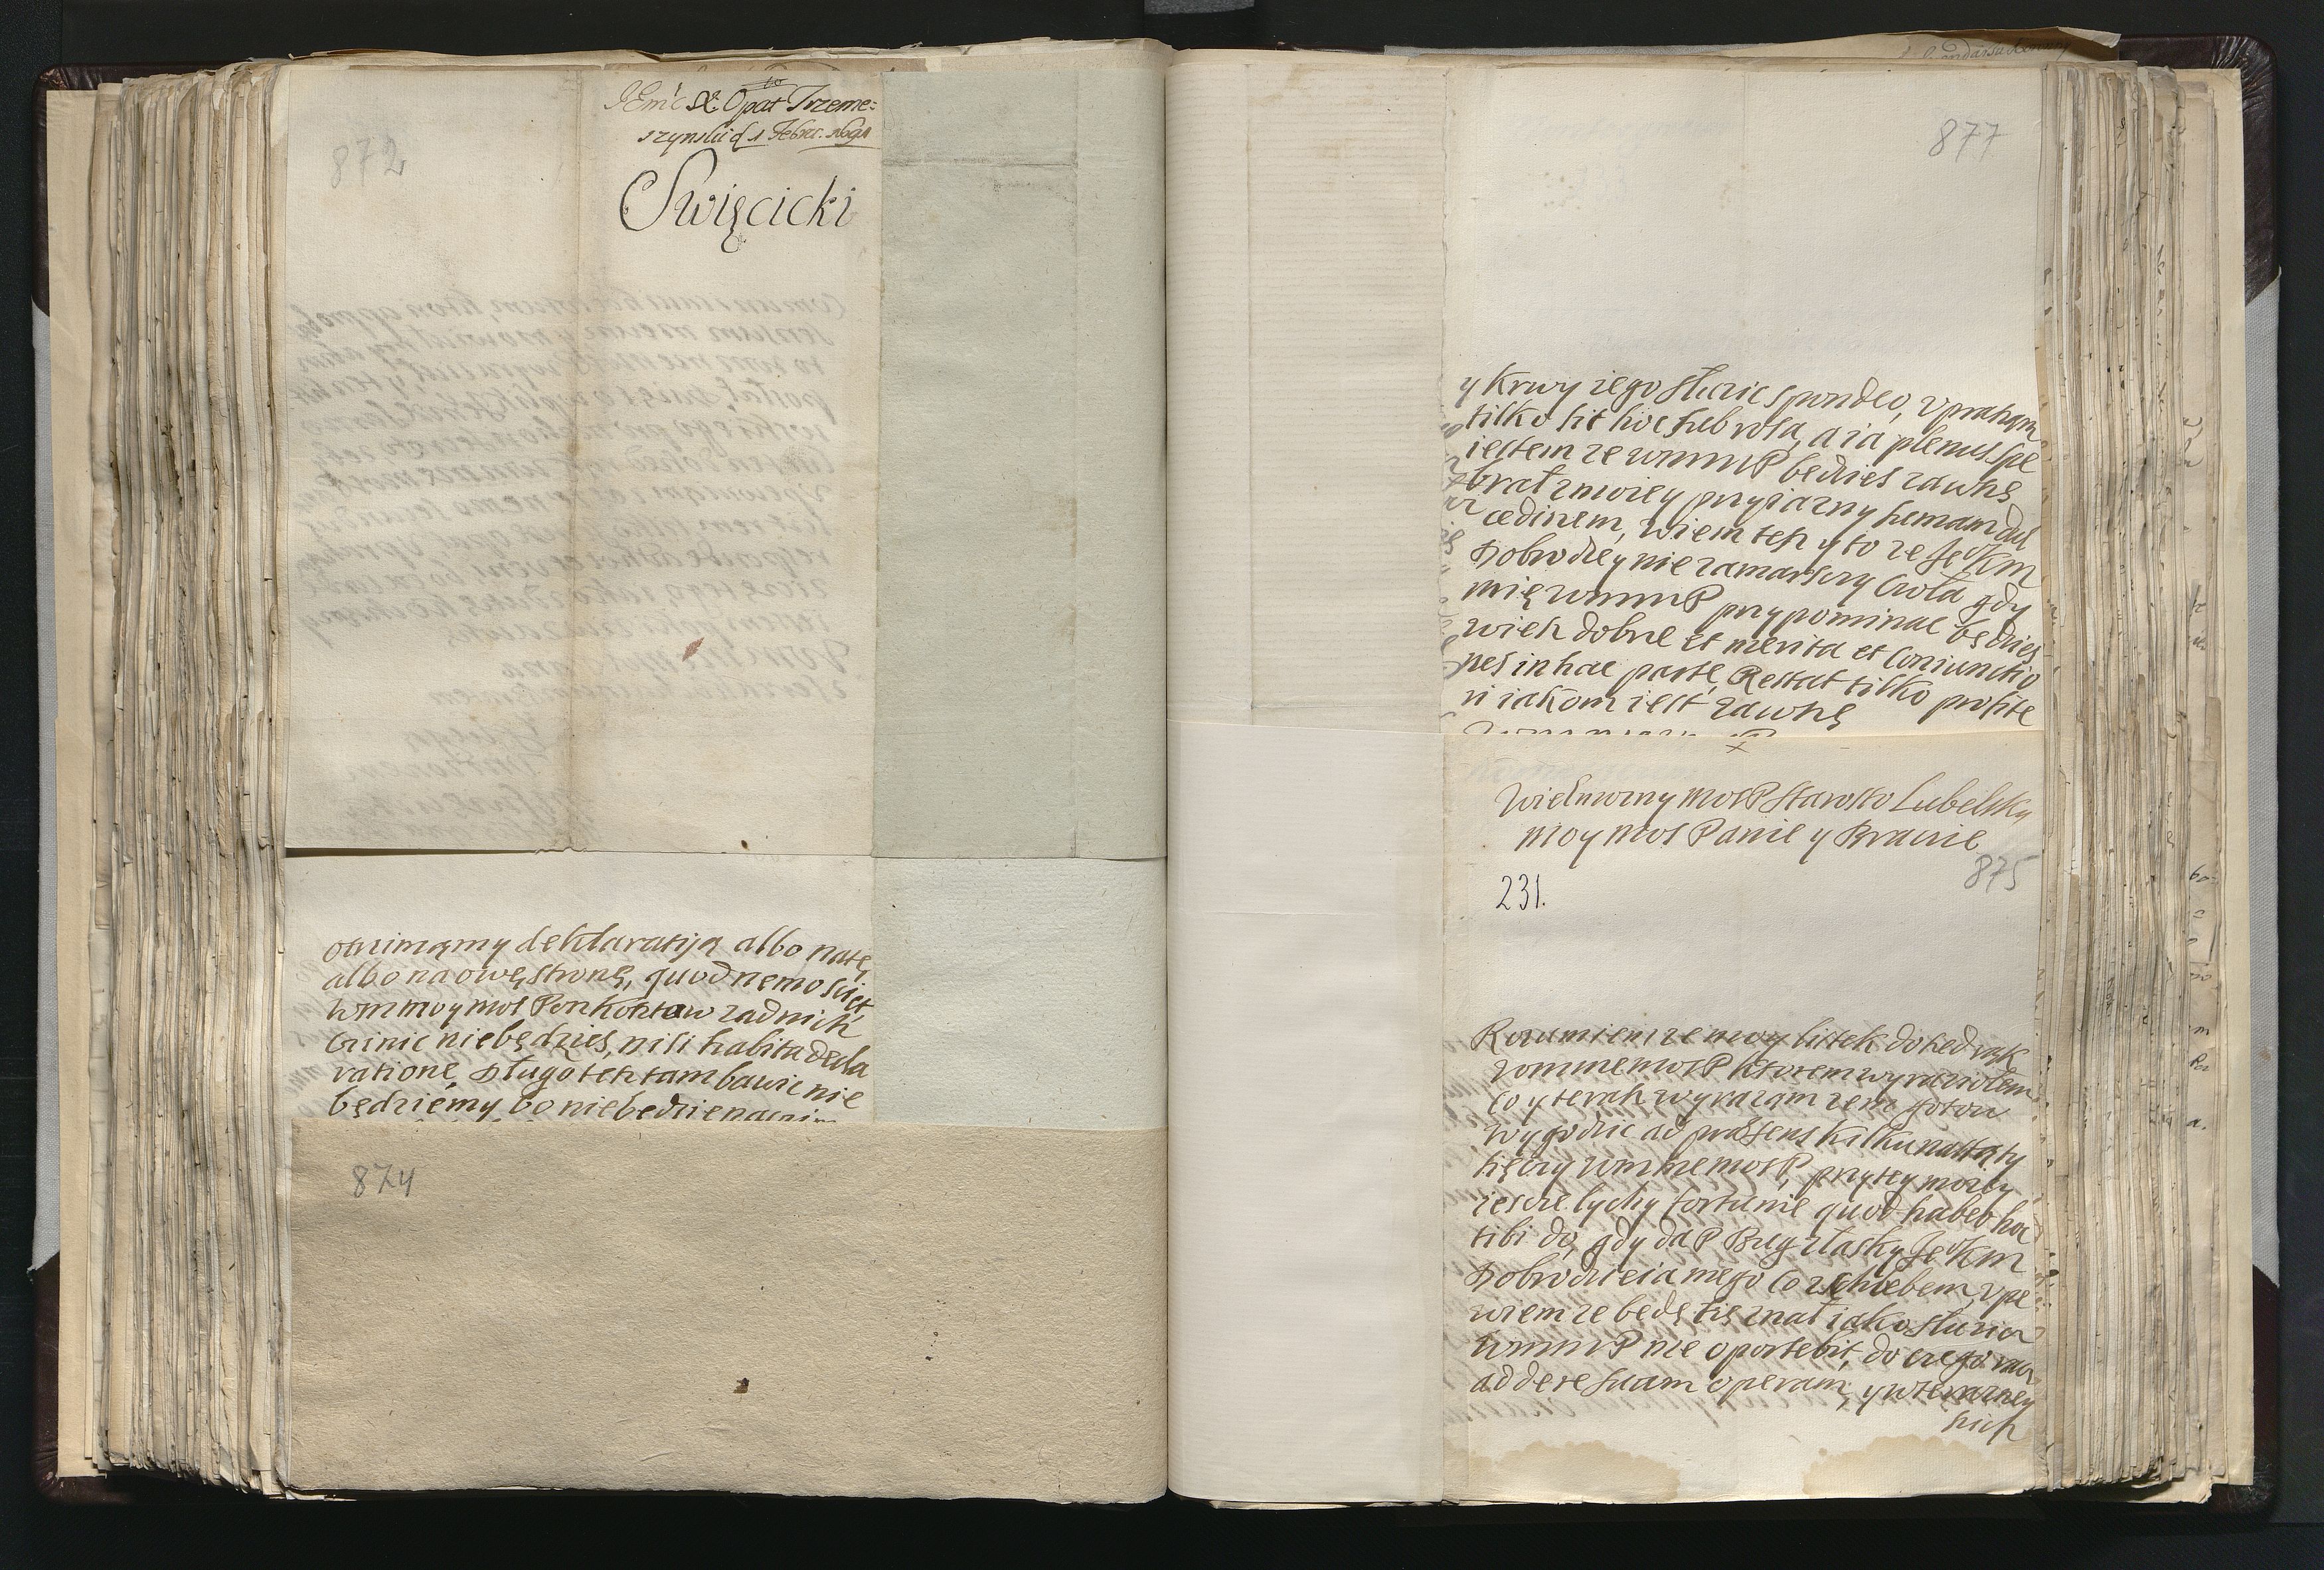 872
JEmć X. Opat Trzeme:
szynski d 1 Febru. 1691
Swięcicki
otrzimamy deklaratiją albo natę
albo na owę stronę, quod nemo sciet
wmmoy mos Pon kontow zadnich
czinic niebędzies, nisi habita decla
ratione, Długo tesz tam bawic nie
będziemy bo niebedzie
874
877
y krwy iego sluzic spondeo, upraszam
tilko sit hoc sub rosa, a ia plenus spe
iestem ze wmmP bedzies zawsze
brat z mocey przyiazny
wiem tesz y to ze
Dobrodzey nie zamarszczy czola gdy
mię wmmP przypominac będzies
wiek dobrze et merita et coniunctio
nes in hac parte, Restat tilko profite
ri iakom iest zawszę
Wielmozny Mos P Starosto Lubelsky
Moy Mos Panie y Bracie
875
231.
Rozumiem ze moy listek doszed rąk
wmmemosP ktorem wyraziołem
co y terasz wyrazam zem gotow
wygodzic ad præsens kilkunastą ty
sięczy wmmemosP, przy tey moiey
iescze lychy fortunie quod habeo hoc
tibi do, gdy da P Bug z lasky JeoKm
Dobrodzieia mego co z chlebem, upe
wiem ze będę się znal iako sluzic
wmmP mie oportebit, do czego racz
addere suam operam, y w terazney
szich